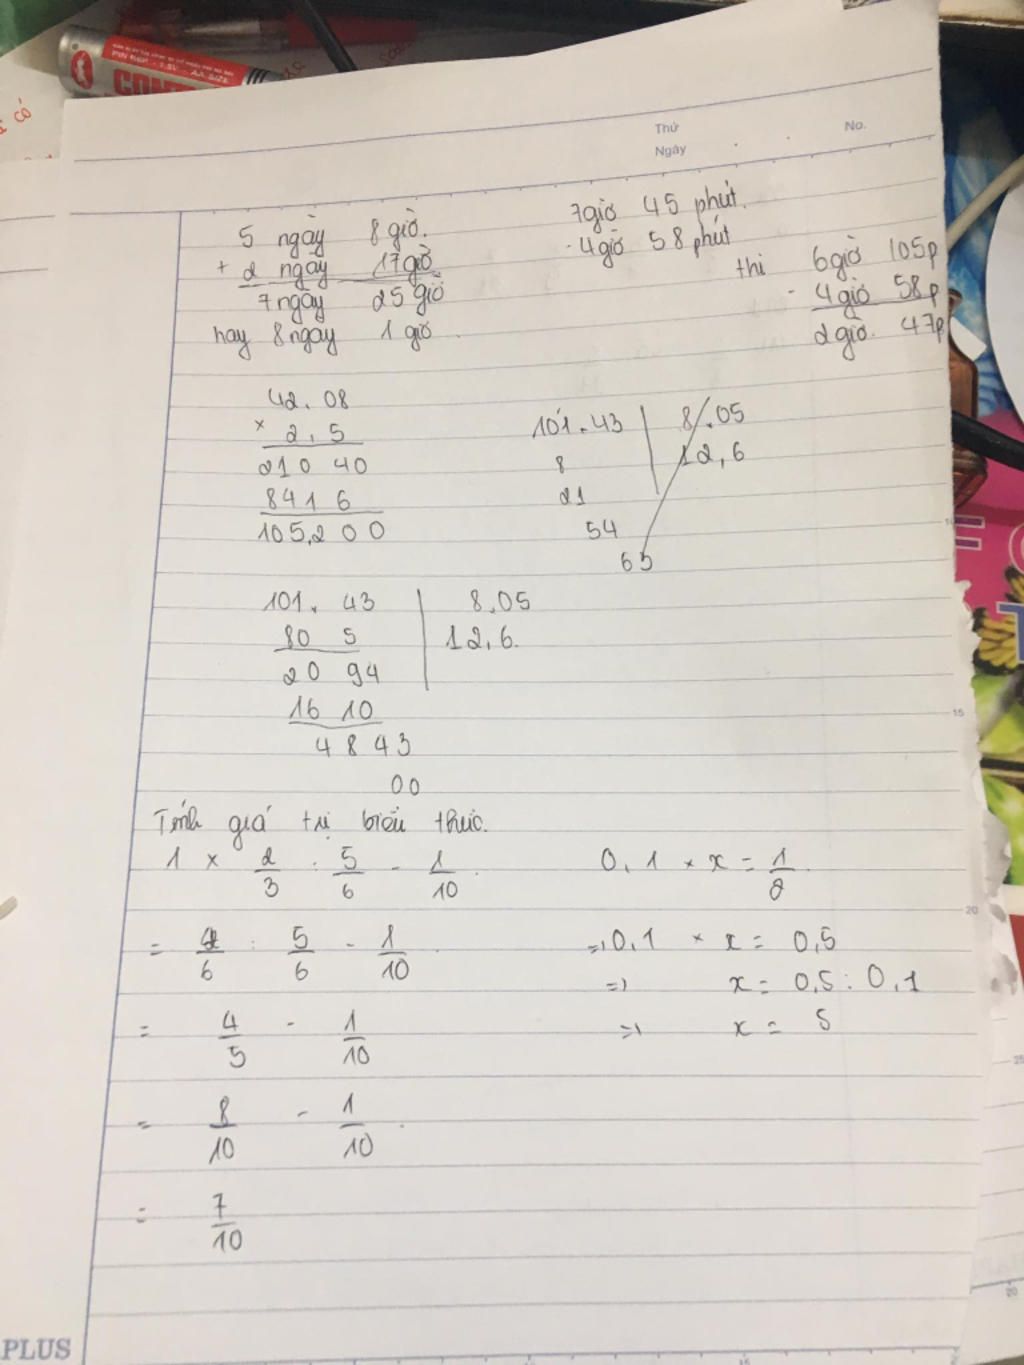 CON
PIN R6P - 1.5V - AA SIZE
có
Thứ
Ngày
No.
5 ngày 8 giờ.
+ 2 ngày 17 giờ
7 ngày 25 giờ
hay 8 ngày 1 giờ
7 giờ 45 phút.
- 4 giờ 58 phút
thi 6 giờ 105p
- 4 giờ 58p
2 giờ. 47p
42,08
× 2,5
210 40
841 6
105,200
101,43 8,05
8 12,6
21
54
63
101,43 8,05
80 5 12,6.
20 94
16 10
4 843
00
Tính giá trị biểu thức.
1 × 2/3 : 5/6 - 1/10.
= 4/6 : 5/6 - 1/10.
= 4/5 - 1/10
= 8/10 - 1/10.
= 7/10
0,1 × x = 1/2.
=> 0,1 × x = 0,5
=> x = 0,5 : 0,1
=> x = 5
15
20
25
20
PLUS